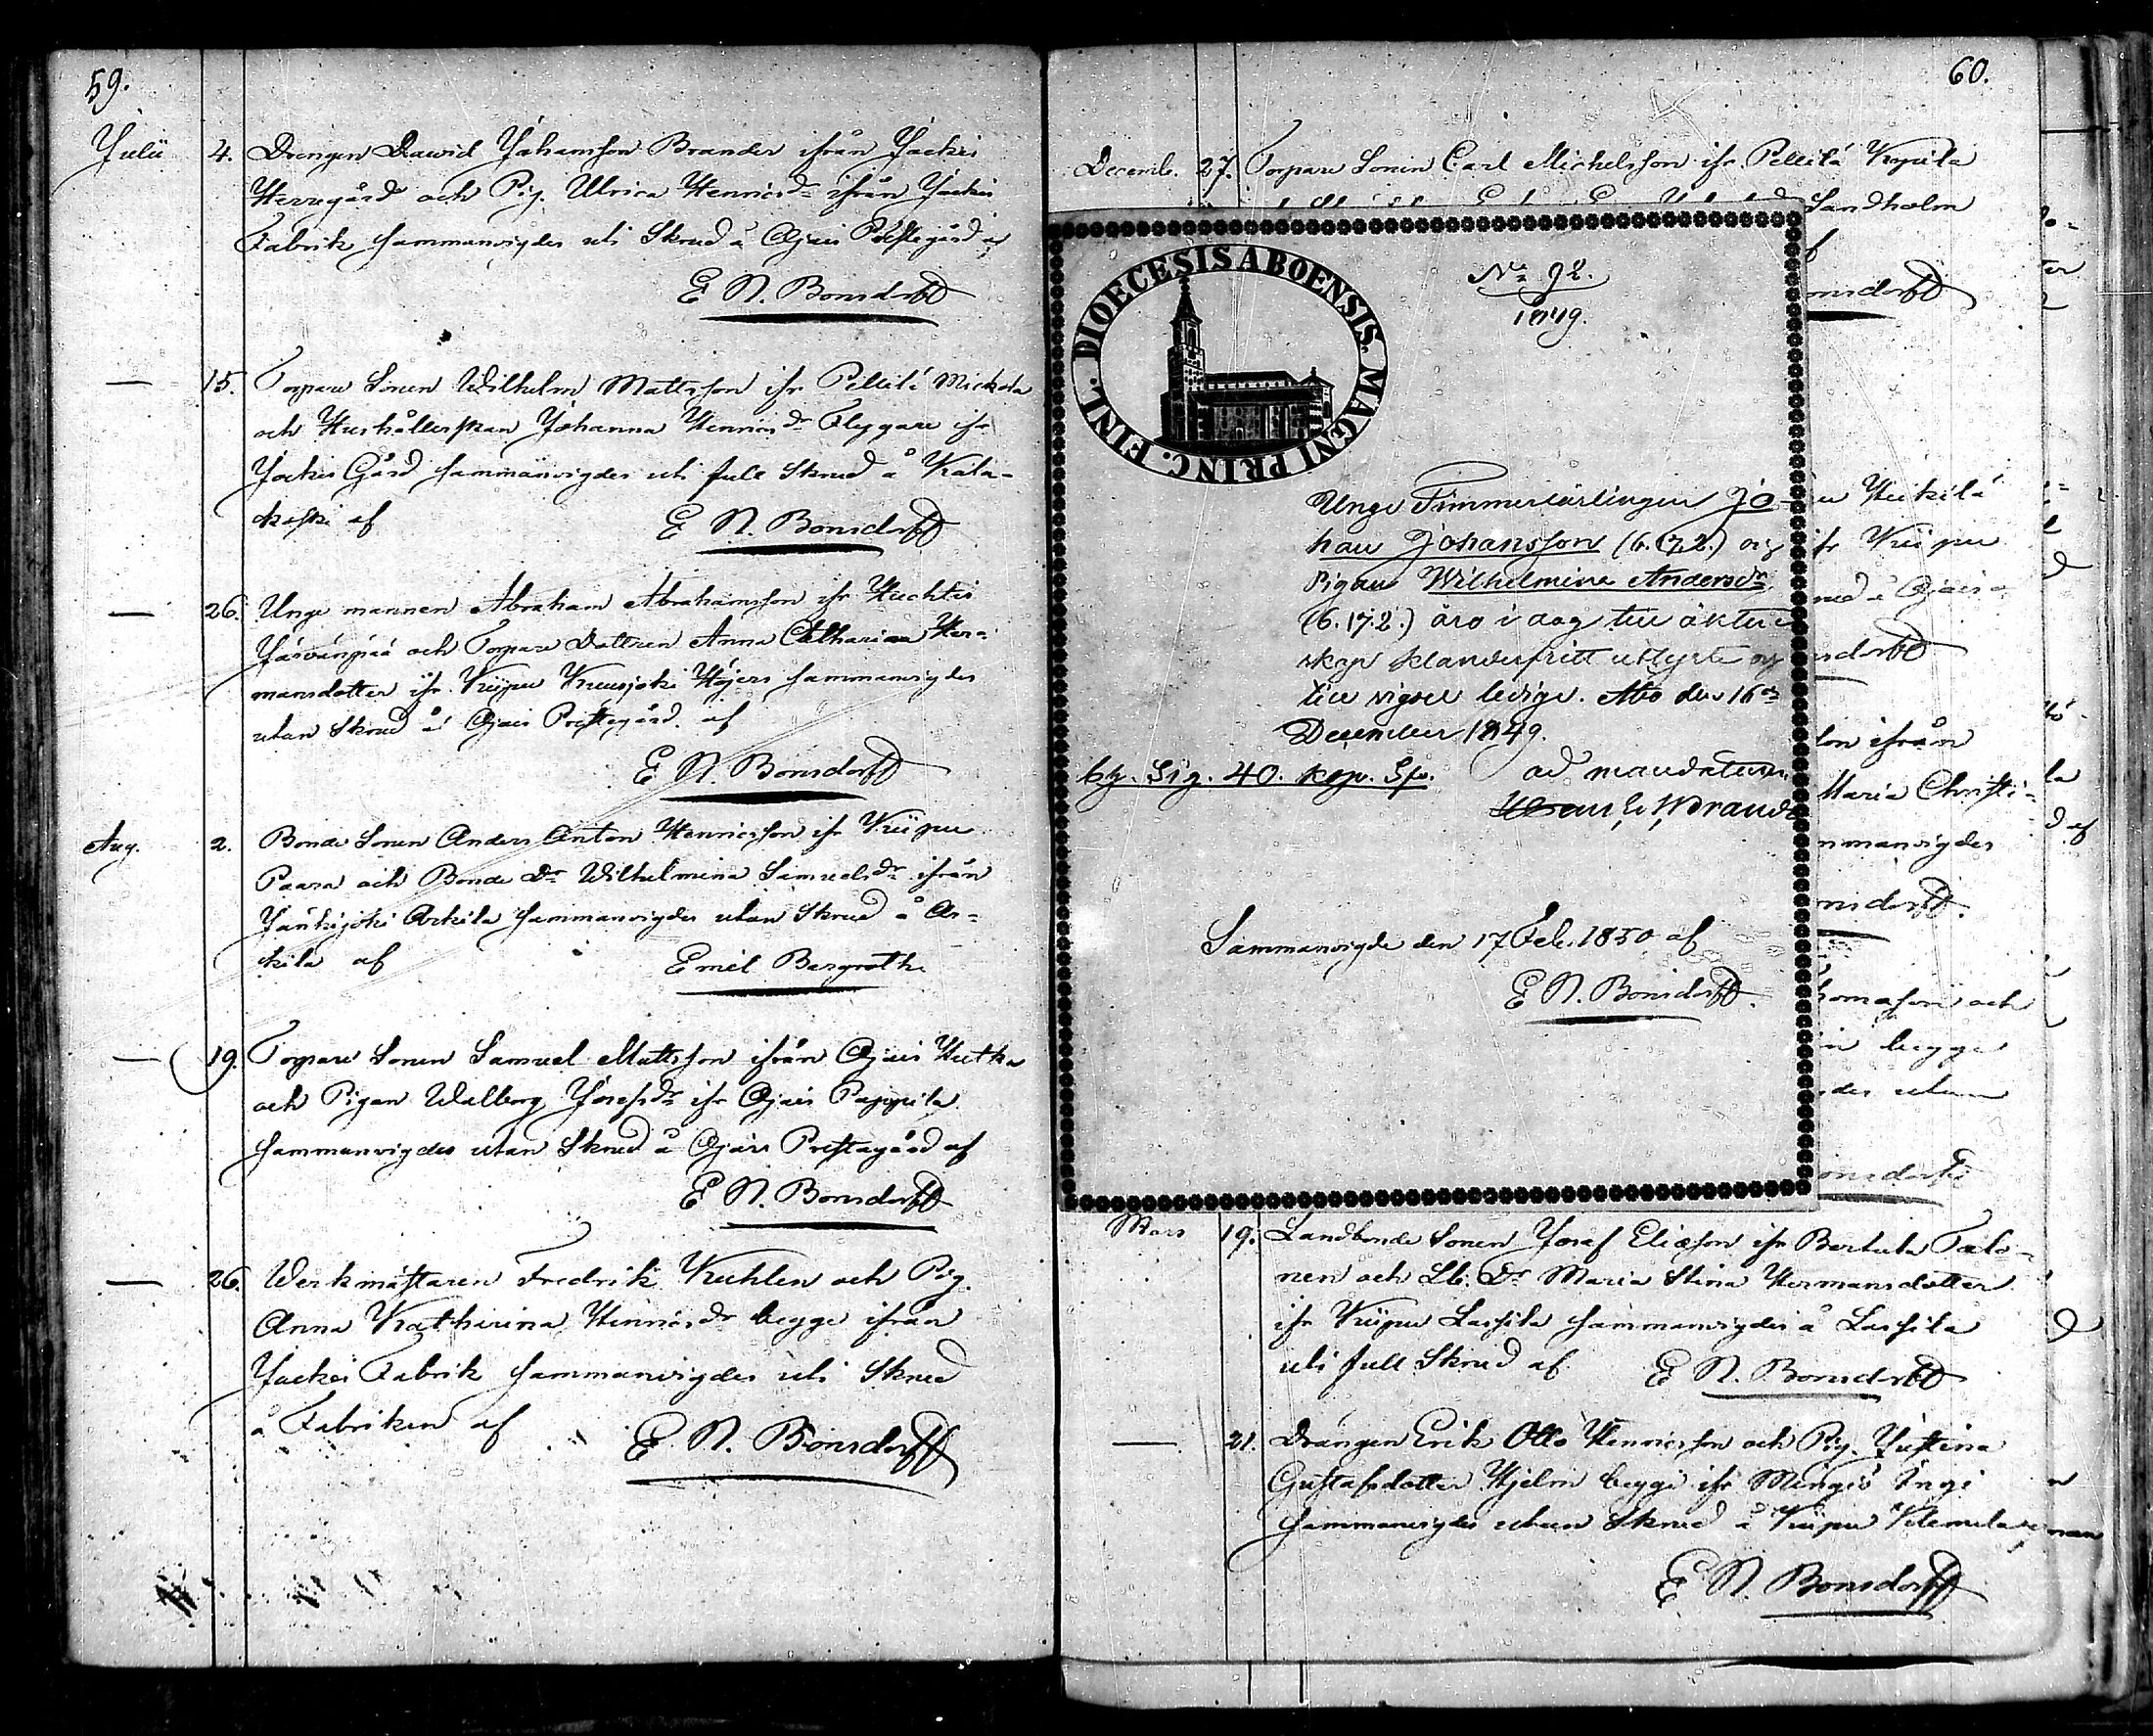 59.
Julii 4. Drengen Dawid Johansson Brander ifrån Jockis
Herregård och Pig. Ulrica Henricsdr ifrån Jockis
Fabrik sammanvigdes uti Skrud å Ojais Prestegård af
E N. Bonsdorff
— 15. Torpare Sonen Wilhelm Mattsson ifr Pellilä Mickola
och Hushållerskan Johanna Henricsdr Flyggare ifr
Jockis Gård sammanvigdes uti full Skrud å Kala-
koski af E N. Bonsdorff
— 26. Unge mannen Abraham Abrahamsson ifr Huhtis
Järvänpää och Torpare Dottren Anna Catharina Her-
mansdotter ifr Kiipu Kreusjoki Höjers sammanvigdes
utan Skrud å Ojais Prestegård af
E N. Bonsdorff
Aug. 2. Bonde Sonen Anders Anton Henricsson ifr Kiipu
Paara och Bonde Dr Wilhelmina Samuelsdr ifrån
Jänhijoki Arkila sammanvigdes utan Skrud å Ar-
kila af Emil Bergroth
— 19. Torpare Sonen Samuel Mattsson ifrån Ojais Hutka
och Pigan Walborg Josefsdr ifr Ojais Pappila
sammanvigdes utan Skrud å Ojais Prestagård af
E N. Bonsdorff
— 26. Werkmästaren Fredrik Kuhlen och Pig.
Anna Katherina Henricsdr begge ifrån
Jockis Fabrik sammanvigdes uti Skrud
å Fabriken af E. N. Bonsdorff
60.
Decemb. 27. Torpare Sonen Carl Michelsson ifr Pellilä Knpila
Sandholm
f
nsdorff
DIOECESIS ABOENSIS. MAGNI PRINC. FINL.
No 92.
1849.
Unge Timmerkarlingen Jo-
han Johansson (6.17.2.) og
Pigan Wilhelmina Andersdr
(6.17.2.) äro i dag till äkten-
skap klanderfritt utlyste og
till vigsel ledige. Abo den 16de
December 1849.
bg. Sig. 40. kop. Sfr. ad mandatum
Sammanvigde den 17 Feb. 1850 af
E N. Bonsdorff.
Heikilä
ifr Kiipu
Ojais
sdorff
son ifrån
Maria Christi-
mmanvigdes
nsdorff.
homasson och
begge
des utan
onsdorff
Mars 19. Landbonde Sonen Josef Eliasson ifr Bertula Talo-
nen och Lb. Dr Maria Stina Hermansdotter
ifr Kiipu Lassila sammanvigdes å Lassila
uti full Skrud af E N. Bonsdorff
— 21. Drängen Erik Otto Henricsson och Pig. Justina
Gustafsdotter Hjelm begge ifr Mingiö Ingi
sammanvigdes utan Skrud å Kiipu Klemela
E N. Bonsdorff